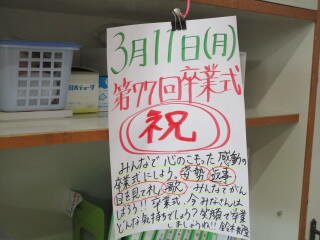 3月11日(月)
第77回卒業式
祝
みんなで心のこもった感動の
卒業式にしよう。姿勢 返事
目を見て礼 歌 みんなでがん
ばろう!!卒業式、今みなさんは
どんな気持ちでしょう?笑顔で卒業
しましょうね!!